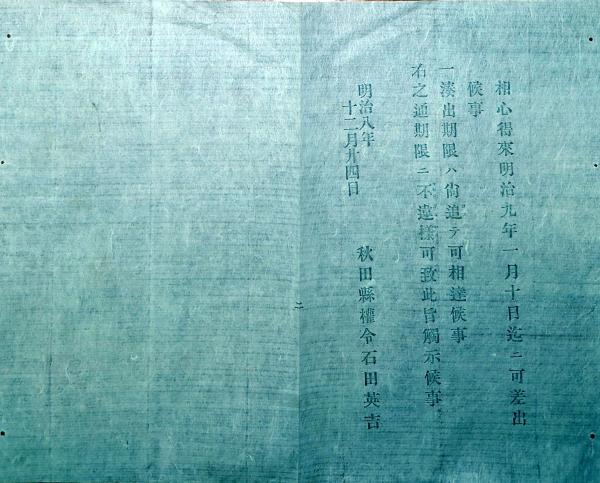 相心得來明治九年一月十日迄ニ可差出
候事
一湊出期限ハ尙追テ可相達候事
右之通期限ニ不違樣可致此旨觸示候事
明治八年
十二月廿四日
秋田縣權令石田英吉
二